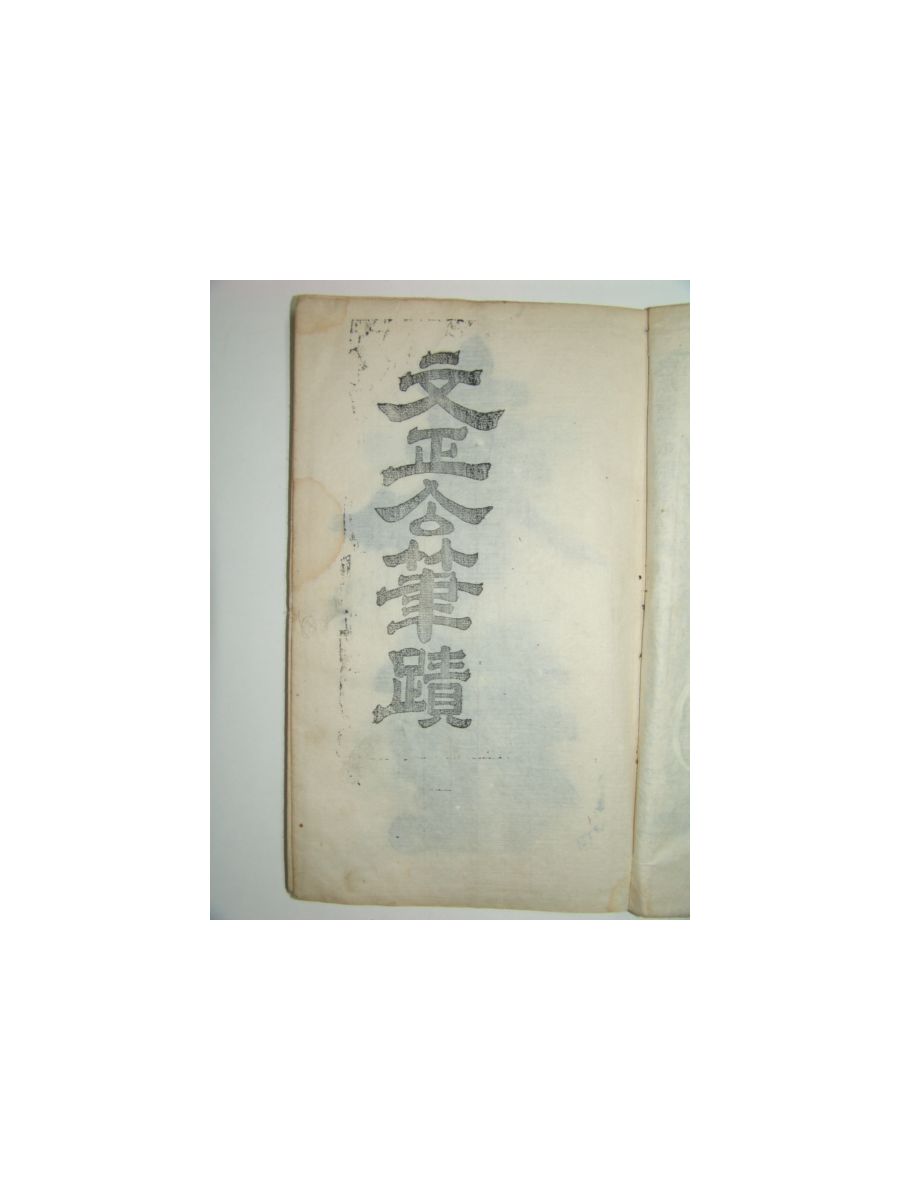 文正公筆蹟